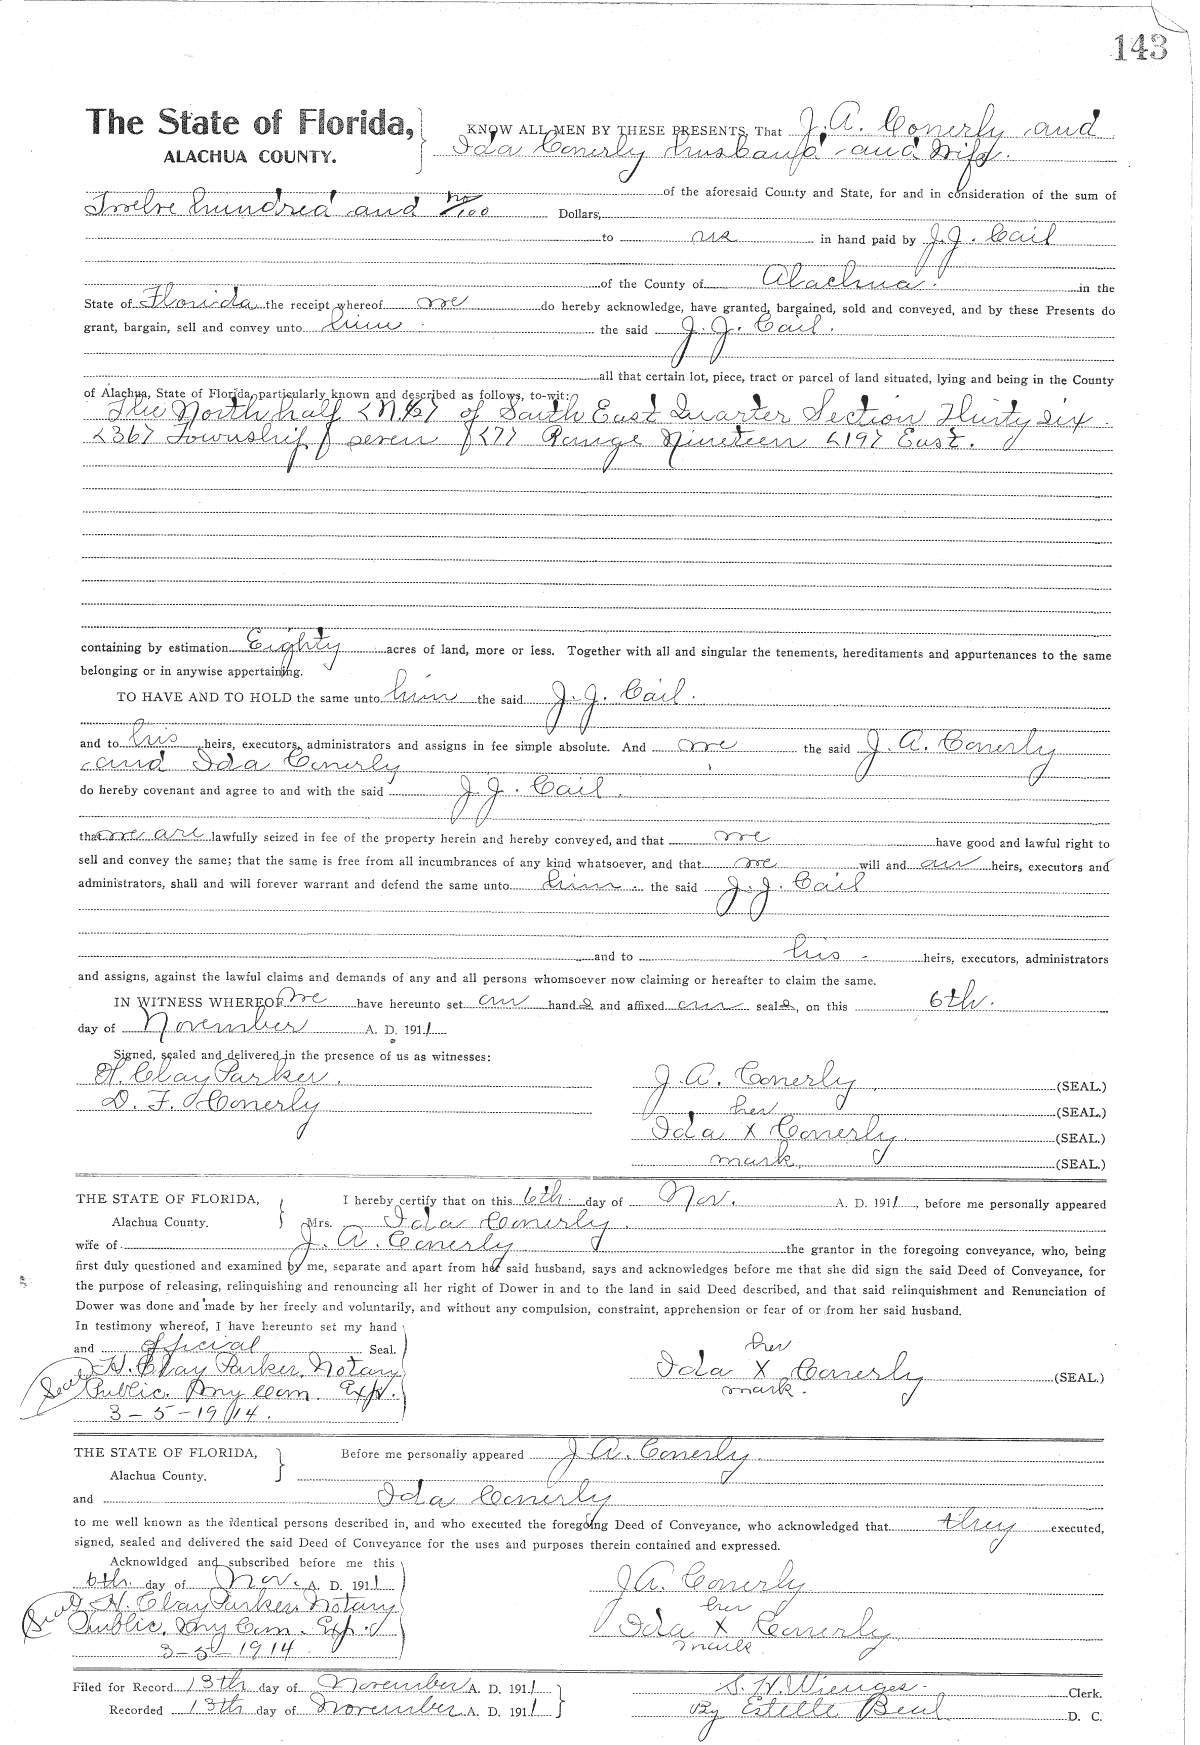 143
The State of Florida,
ALACHUA COUNTY.
KNOW ALL MEN BY THESE PRESENTS, That J. A. Conerly and
Ida Conerly husband and Wife.
of the aforesaid County and State, for and in consideration of the sum of
Twelve hundred and no/100 Dollars,
to us in hand paid by J. J. Cail
of the County of Alachua. in the
State of Florida the receipt whereof we do hereby acknowledge, have granted, bargained, sold and conveyed, and by these Presents do
grant, bargain, sell and convey unto him the said J. J. Cail.
all that certain lot, piece, tract or parcel of land situated, lying and being in the County
of Alachua, State of Florida, particularly known and described as follows, to-wit:
The North half <N.½> of South East Quarter Section Thirty six
<36> Township seven <7> Range Nineteen <19> East.
containing by estimation Eighty acres of land, more or less. Together with all and singular the tenements, hereditaments and appurtenances to the same
belonging or in anywise appertaining.
TO HAVE AND TO HOLD the same unto him the said J. J. Cail.
and to his heirs, executors, administrators and assigns in fee simple absolute. And we the said J. A. Conerly
and Ida Conerly
do hereby covenant and agree to and with the said J. J. Cail.
that we are lawfully seized in fee of the property herein and hereby conveyed, and that we have good and lawful right to
sell and convey the same; that the same is free from all incumbrances of any kind whatsoever, and that we will and our heirs, executors and
administrators, shall and will forever warrant and defend the same unto him. the said J. J. Cail
and to his heirs, executors, administrators
and assigns, against the lawful claims and demands of any and all persons whomsoever now claiming or hereafter to claim the same.
IN WITNESS WHEREOF We have hereunto set our hands and affixed our seals, on this 6th.
day of November A. D. 1911
Signed, sealed and delivered in the presence of us as witnesses:
H. Clay Parker. J. A. Conerly (SEAL.)
D. F. Conerly her (SEAL.)
Ida X Conerly. (SEAL.)
mark. (SEAL.)
THE STATE OF FLORIDA, I hereby certify that on this 6th. day of Nov. A. D. 1911, before me personally appeared
Alachua County. Mrs. Ida Conerly.
wife of J. A. Conerly the grantor in the foregoing conveyance, who, being
first duly questioned and examined by me, separate and apart from her said husband, says and acknowledges before me that she did sign the said Deed of Conveyance, for
the purpose of releasing, relinquishing and renouncing all her right of Dower in and to the land in said Deed described, and that said relinquishment and Renunciation of
Dower was done and made by her freely and voluntarily, and without any compulsion, constraint, apprehension or fear of or from her said husband.
In testimony whereof, I have hereunto set my hand
and official Seal. her
Seal H. Clay Parker, Notary Ida X Conerly (SEAL.)
Public. My Com. Exp. mark.
3-5-1914.
THE STATE OF FLORIDA, Before me personally appeared J. A. Conerly.
Alachua County.
and Ida Conerly
to me well known as the identical persons described in, and who executed the foregoing Deed of Conveyance, who acknowledged that they executed,
signed, sealed and delivered the said Deed of Conveyance for the uses and purposes therein contained and expressed.
Acknowldged and subscribed before me this
6th day of Nov. A. D. 1911 J A. Conerly
Seal H. Clay Parker, Notary her
Public. My Com. Exp. Ida X Conerly
3-5-1914. mark
Filed for Record 13th day of November A. D. 1911 S. H. Wienges. Clerk.
Recorded 13th day of November A. D. 1911 By Estelle Beul D. C.